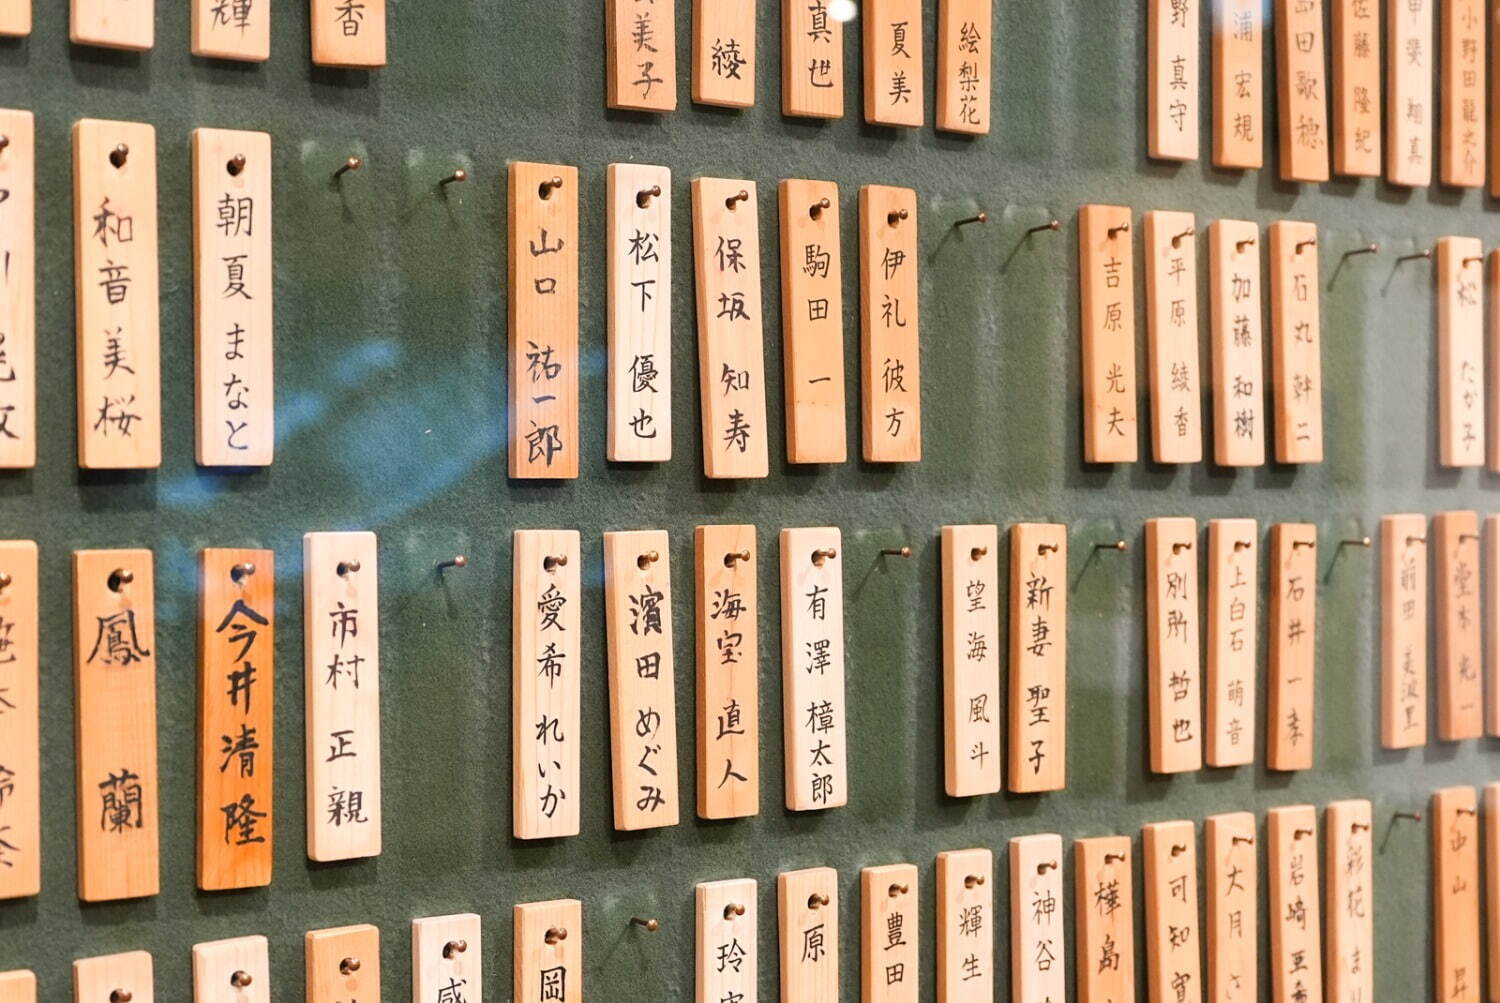 輝
香
美子
綾
真也
夏美
絵梨花
野 真守
浦 宏規
田 歌穂
佐藤 隆紀
甲斐 翔真
小野田龍之介
和音美桜
朝夏まなと
山口 祐一郎
松下 優也
保坂 知寿
駒田 一
伊礼 彼方
吉原 光夫
平原 綾香
加藤 和樹
石丸 幹二
松 たか子
鳳 蘭
今井清隆
市村 正親
愛希 れいか
濱田 めぐみ
海宝 直人
有澤 樟太郎
望海 風斗
新妻 聖子
別所 哲也
上白石 萌音
石井 一孝
前田 美波里
堂本 光一
岡
玲
原
豊田
輝生
神谷
樺島
可知 寛
大月 さ
岩崎 亜希
彩花 ま